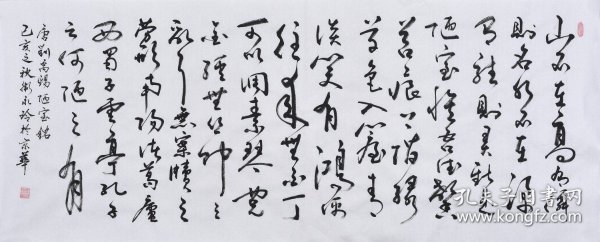 山不在高有仙
則名水不在深
有龍則靈斯是
陋室惟吾德馨
苔痕上階綠
草色入簾青
談笑有鴻儒
往來無白丁
可以調素琴閱
金經無絲竹之
亂耳無案牘之
勞形南陽諸葛廬
西蜀子雲亭孔子
云何陋之有
唐劉禹錫陋室銘
己亥之秋 永玲於京華
孔夫子旧书网
www.kongfz.com